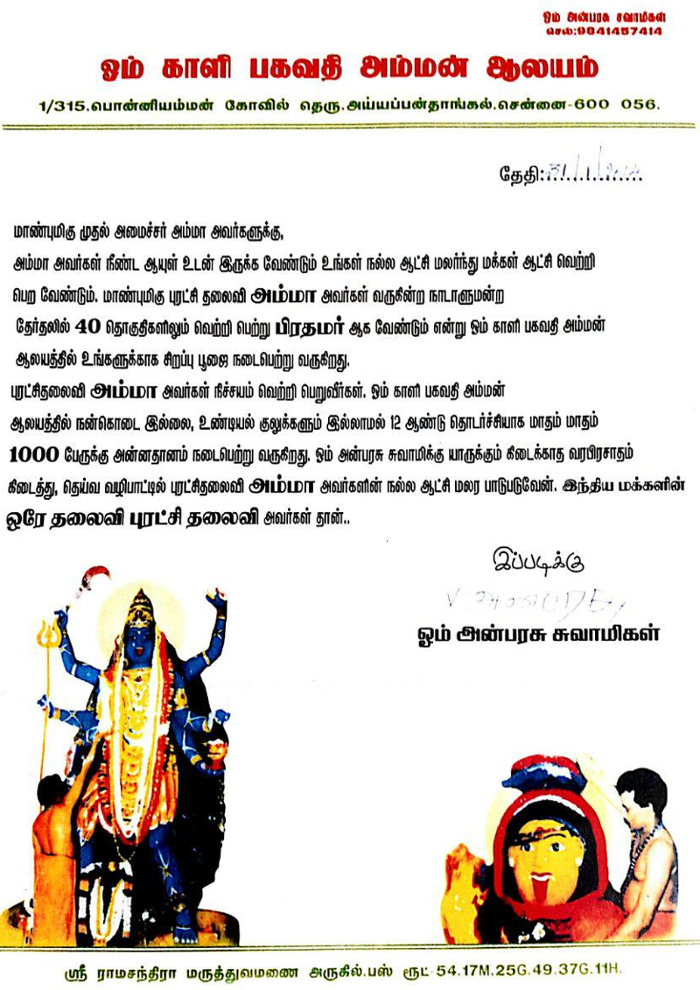 ஓம் அன்பரசு சுவாமிகள்
செல்:9841457414
ஓம் காளி பகவதி அம்மன் ஆலயம்
1/315.பொன்னியம்மன் கோவில் தெரு.அய்யப்பன்தாங்கல்.சென்னை-600 056.
தேதி:
மாண்புமிகு முதல் அமைச்சர் அம்மா அவர்களுக்கு,
அம்மா அவர்கள் நீண்ட ஆயுள் உடன் இருக்க வேண்டும் உங்கள் நல்ல ஆட்சி மலர்ந்து மக்கள் ஆட்சி வெற்றி
பெற வேண்டும். மாண்புமிகு புரட்சி தலைவி அம்மா அவர்கள் வருகின்ற நாடாளுமன்ற
தேர்தலில் 40 தொகுதிகளிலும் வெற்றி பெற்று பிரதமர் ஆக வேண்டும் என்று ஓம் காளி பகவதி அம்மன்
ஆலயத்தில் உங்களுக்காக சிறப்பு பூஜை நடைபெற்று வருகிறது.
புரட்சிதலைவி அம்மா அவர்கள் நிச்சயம் வெற்றி பெறுவீர்கள். ஓம் காளி பகவதி அம்மன்
ஆலயத்தில் நன்கொடை இல்லை, உண்டியல் குலுக்களும் இல்லாமல் 12 ஆண்டு தொடர்ச்சியாக மாதம் மாதம்
1000 பேருக்கு அன்னதானம் நடைபெற்று வருகிறது. ஓம் அன்பரசு சுவாமிக்கு யாருக்கும் கிடைக்காத வரபிரசாதம்
கிடைத்து, தெய்வ வழிபாட்டில் புரட்சிதலைவி அம்மா அவர்களின் நல்ல ஆட்சி மலர பாடுபடுவேன். இந்திய மக்களின்
ஒரே தலைவி புரட்சி தலைவி அவர்கள் தான்..
இப்படிக்கு
ஓம் அன்பரசு சுவாமிகள்
ஸ்ரீ ராமசந்திரா மருத்துவமணை அருகில்.பஸ் ரூட்-54.17M.25G.49.37G.11H.